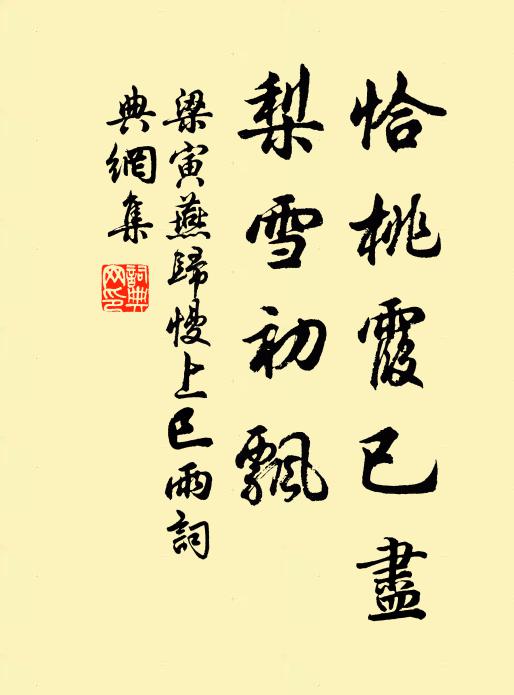 恰桃霞已盡
梨雪初飄
梁寅燕歸慢上巳雨詞
典網集
詞典網印